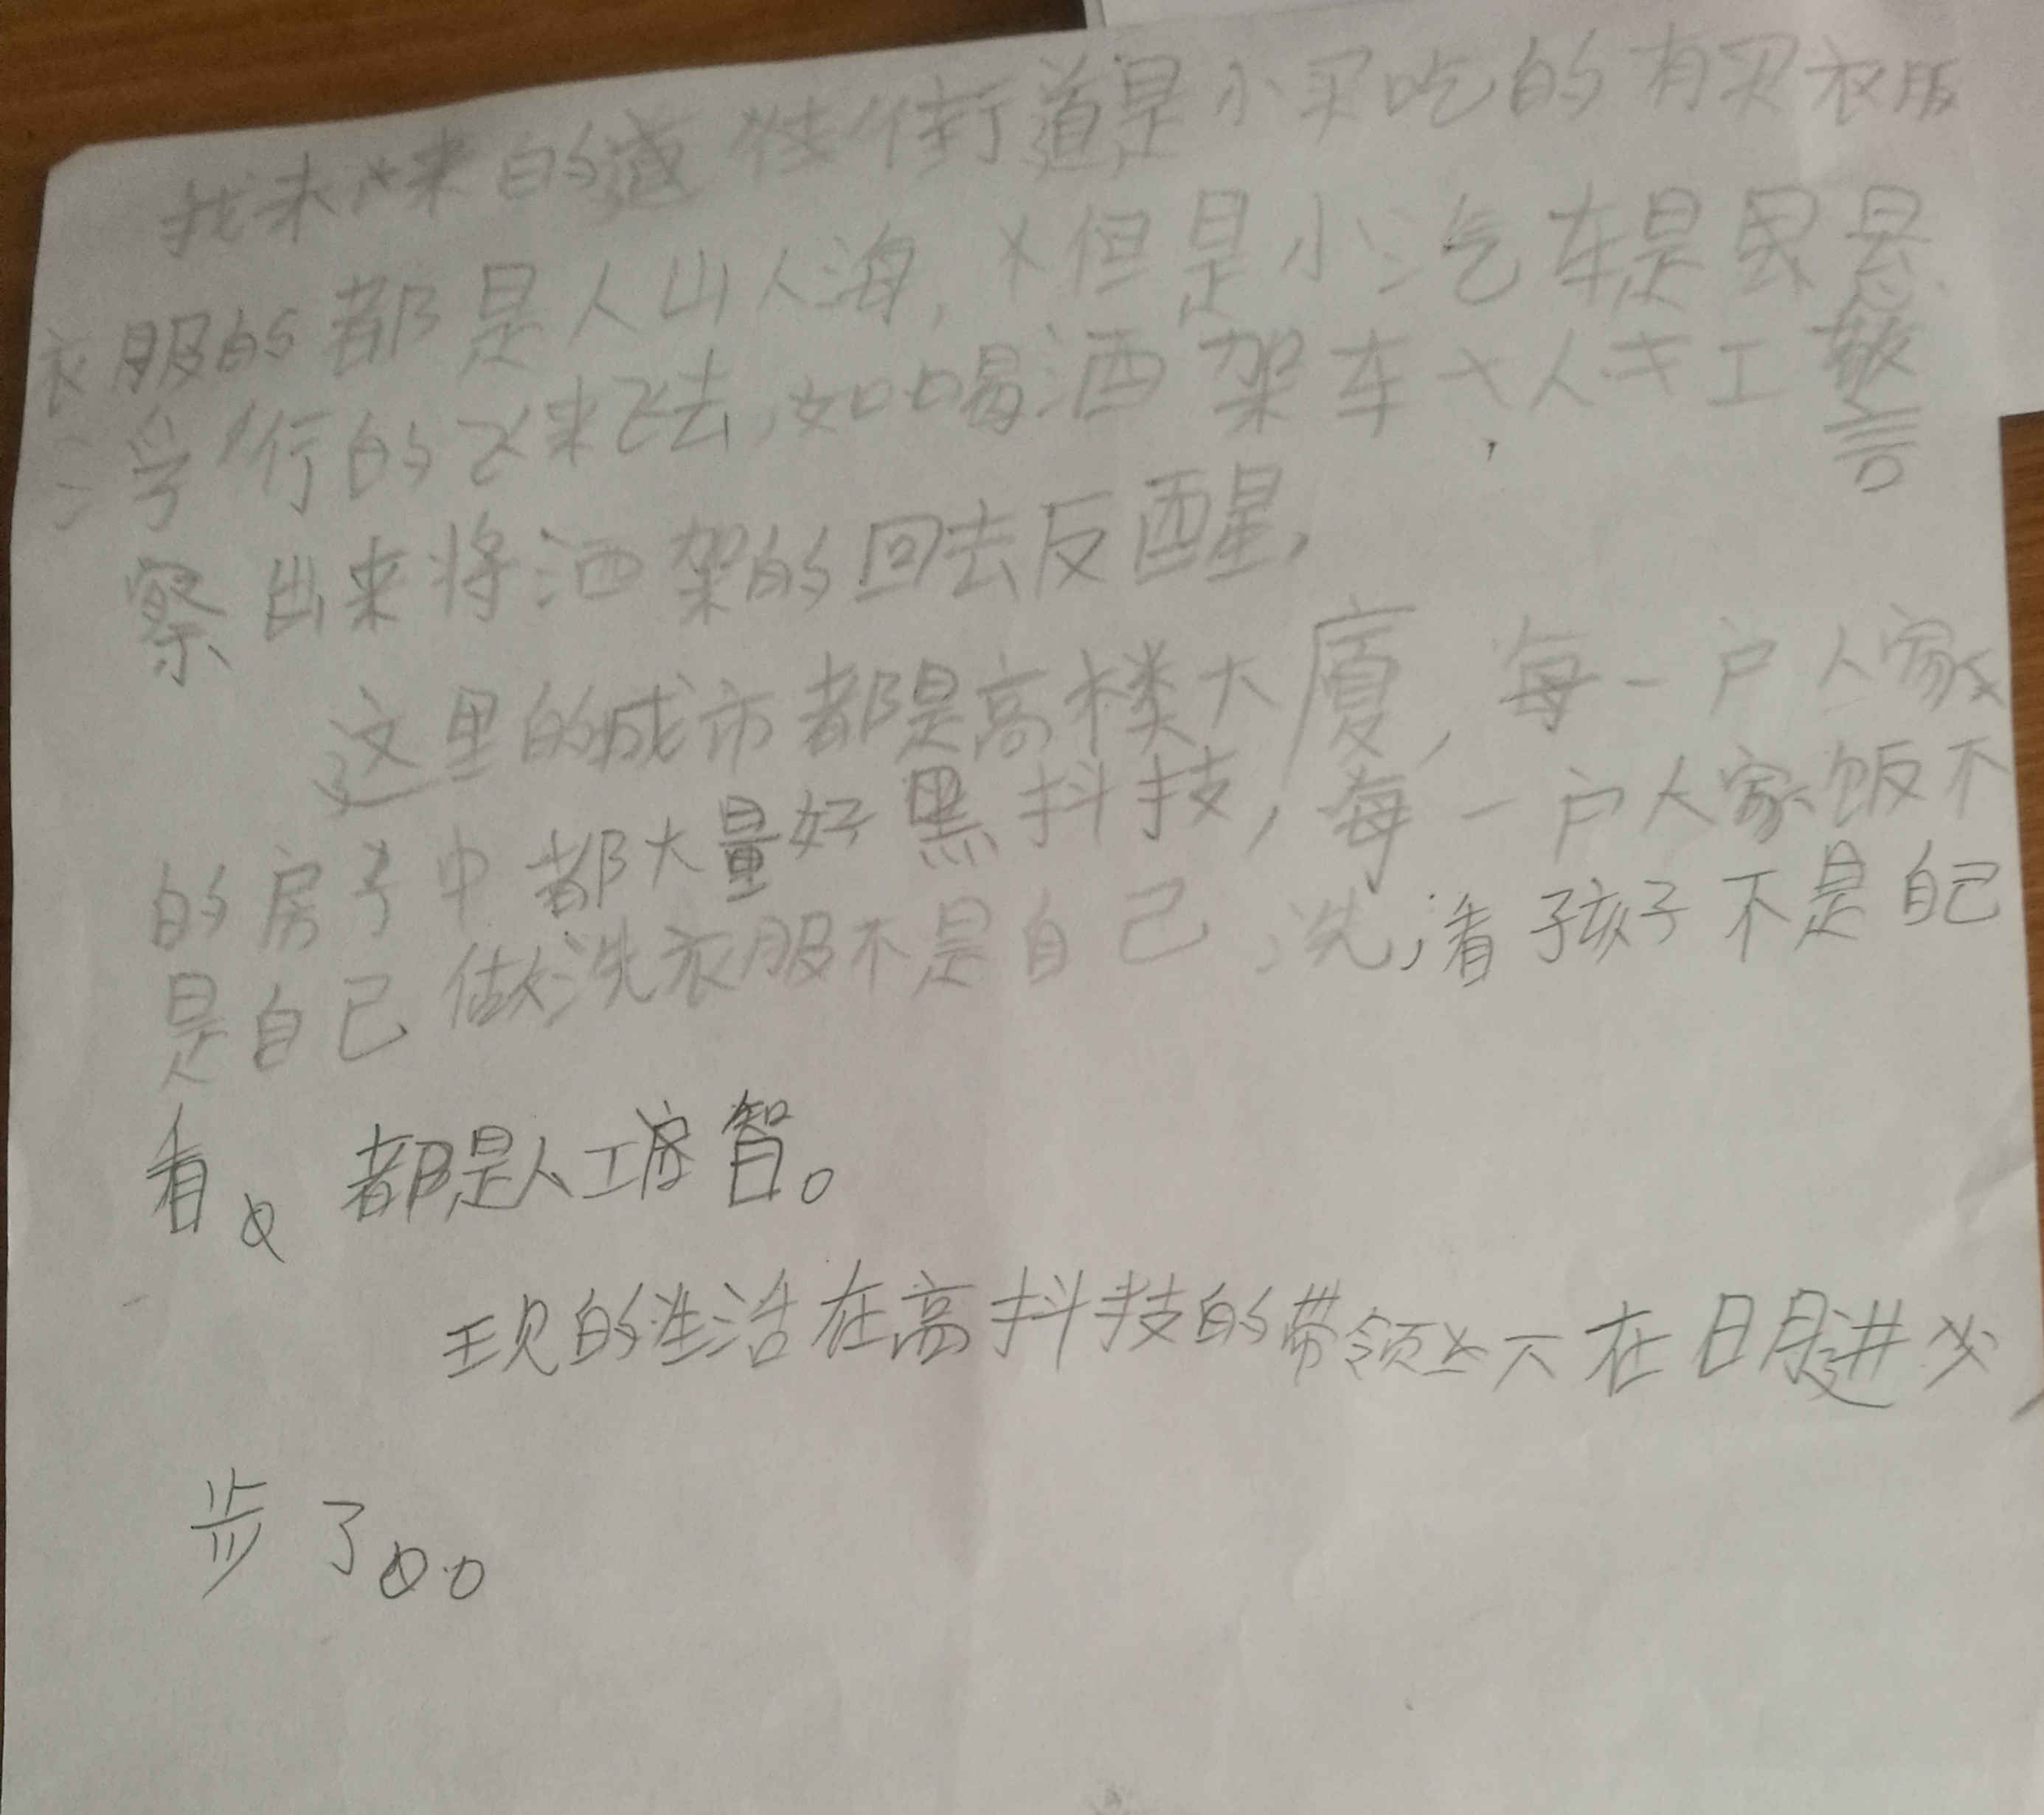 找未来的城街道是小买吃的有买衣服
衣服的都是人山人海,但是小汽车是悬
浮行的飞来飞去,如喝洒架车人工警
察出来将洒架的回去反醒,
这里的城市都是高楼大厦,每一户人家
的房子中都大量好黑抖技,每一户人家饭不
是自己做洗衣服不是自己洗,看孩子不是自己
看、都是人工智。
现的生活在高抖技的带领下在日月进步
步了。